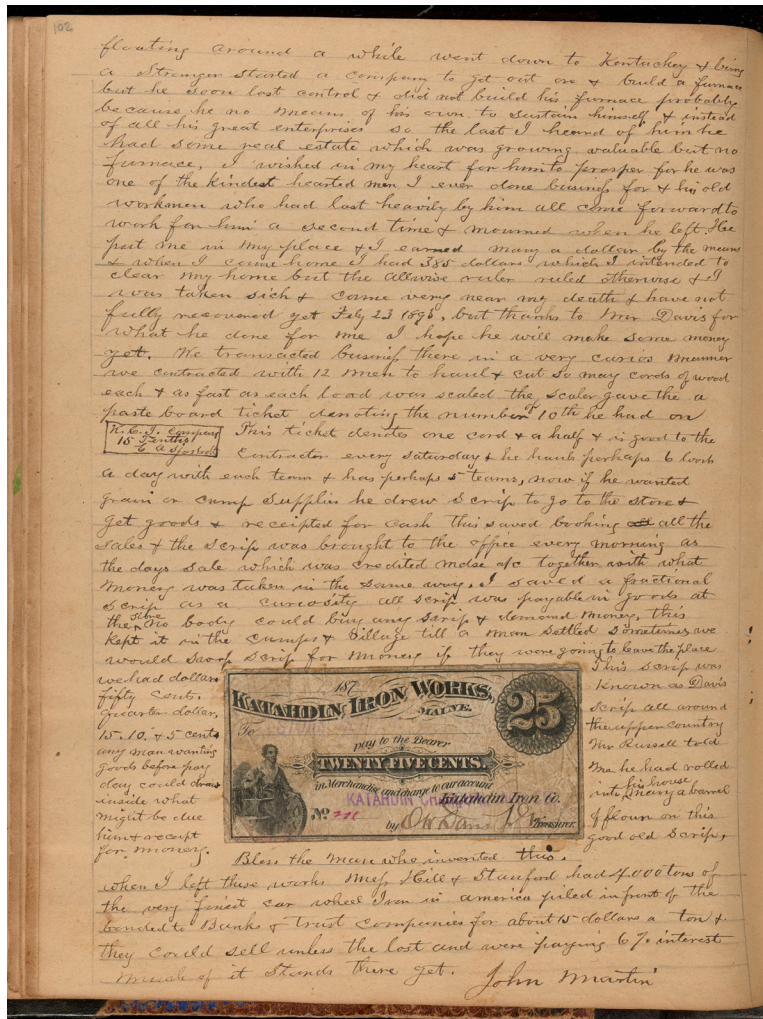 102
floating around a while went down to Kentuckey & being
a Stranger started a company to get out ore & build a furnace
but he soon lost control & did not build his furnace probably
because he no means of his own to sustain himself & instead
of all his great enterprises so the last I heard of him he
had some real estate which was growing valuable but no
furnace, I wished in my heart for him to prosper for he was
one of the kindest hearted men I ever done business for & his old
workmen who had lost heavily by him all come forward to
work for him a second time & mourned when he left. He
put me in my place & I earned many a dollar by the means
& when I came home I had 385 dollars which I intended to
clear my home but the allwise ruler ruled otherwise & I
was taken sick & came very near my death & have not
fully recovered yet Feby 23 1896, but thanks to Mr Davis for
what he done for me I hope he will make some money
yet. We transacted business there in a very curios manner
we contracted with 12 men to haul & cut so may cords of wood
each & as fast as each load was scaled the scaler gave the a
paste board ticket denoting the number of 10th he had on
K. C. I. Company
15 Tenths
This ticket denotes one cord & a half & is good to the
Contractor every Saturday & he hauls perhaps 6 loads
a day with each team & has perhaps 5 teams, now if he wanted
grain or camp Supplies he drew scrip to go to the store &
get goods & receipted for cash this saved booking all the
sales & the scrip was brought to the office every morning as
the days sale which was credited mdse a/c together with what
money was taken in the same way. I saved a fractional
scrip as a curiosity all scrip was payable in goods at
the Store No body could buy any scrip & demand money, this
kept it in the camps & Village till a man settled sometimes we
would swop scrip for money if they were going to leave the place
we had dollars
fifty cent.
quarter dollar,
15. 10. & 5 cents
any man wanting
goods before pay
day could draw
inside what
might be due
him & receipt
for money.
187
KATAHDIN IRON WORKS,
MAINE.
25
To
pay to the Bearer
TWENTY FIVE CENTS,
in Merchandise and charge to our account
KATAHDIN
Katahdin Iron Co.
No
by O W Davis Jr Treasurer.
This scrip was
known as Davis
scrip all around
the upper country
Mr Russell told
me he had rolled
into his house many a barrel
of flour on this
good old scrip,
Bless the man who invented this.
when I left these works Mess Hill & Stanford had 4000 tons of
the very finest car wheel Iron in america piled in front of the
bonded to Banks & trust companies for about 15 dollars a ton &
they could sell unless the lost and were paying 6 % interest
much of it stands there yet.
John Martin